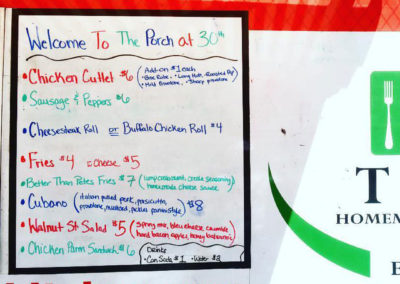 Welcome To The Porch at 30th
• Chicken Cutlet $6 (Add-on $1 each
• Broc Rabe • Long Hots • Roasted Pep
• Mild Provolone • Sharp provolone)
• Sausage & Peppers $6
• Cheesesteak Roll or Buffalo Chicken Roll $4
• Fries $4 w/ Cheese $5
• Better Than Petes Fries $7 (lump crabmeat, creole seasoning
homemade cheese sauce)
• Cubano (italian pulled pork, prosciutto,
provolone, mustard, pickles panini style) $8
• Walnut St Salad $5 (spring mix, bleu cheese, crumble
bacon, apples, honey balsamic)
• Chicken Parm Sandwich $6
Drinks
• Can Soda $1 • Water $2
T
HOMEM
B